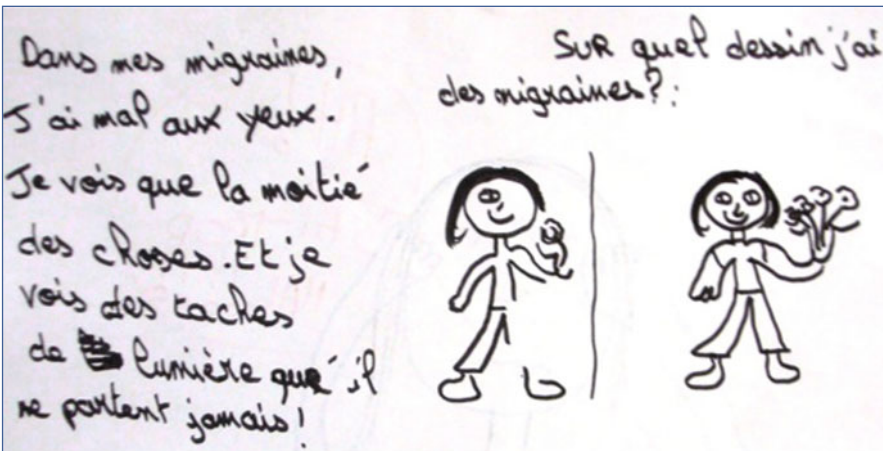 Dans mes migraines,
J'ai mal aux yeux.
Je vois que la moitié
des choses. Et je
vois des taches
de lumière que il
ne partent jamais!
SUR quel dessin j'ai
des migraines?: